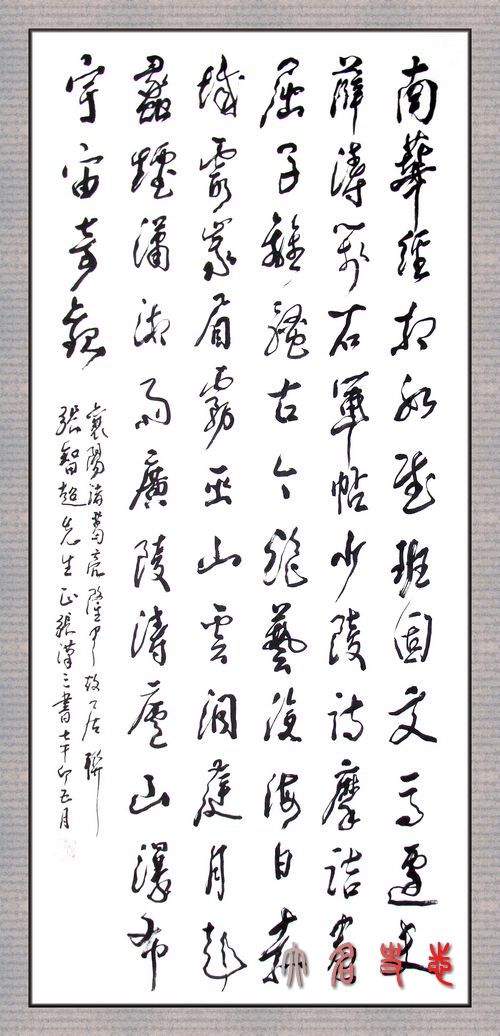 南華經相如賦班固文馬遷史
薛濤箋右軍帖少陵詩摩詰畫
屈子離騷古今絕藝滄海日赤
城霞峨眉霧巫山雲洞庭月彭
蠡煙瀟湘雨廣陵濤廬山瀑布
宇宙奇觀
襄陽諸葛亮隆中故居聯
張智超先生正張漢三書辛卯五月